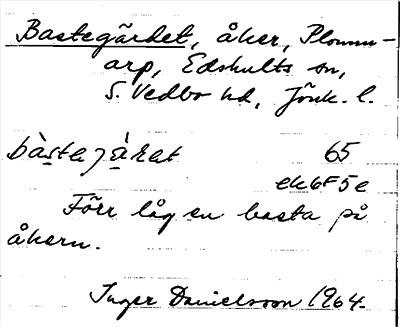 Bastegärdet, åker, Plomm-
arp, Edshults sn,
S. Vedbo hd, Jönk. l.
65
ek6F5e
Förr låg en basta på
åkern.
Inger Danielsson 1964.